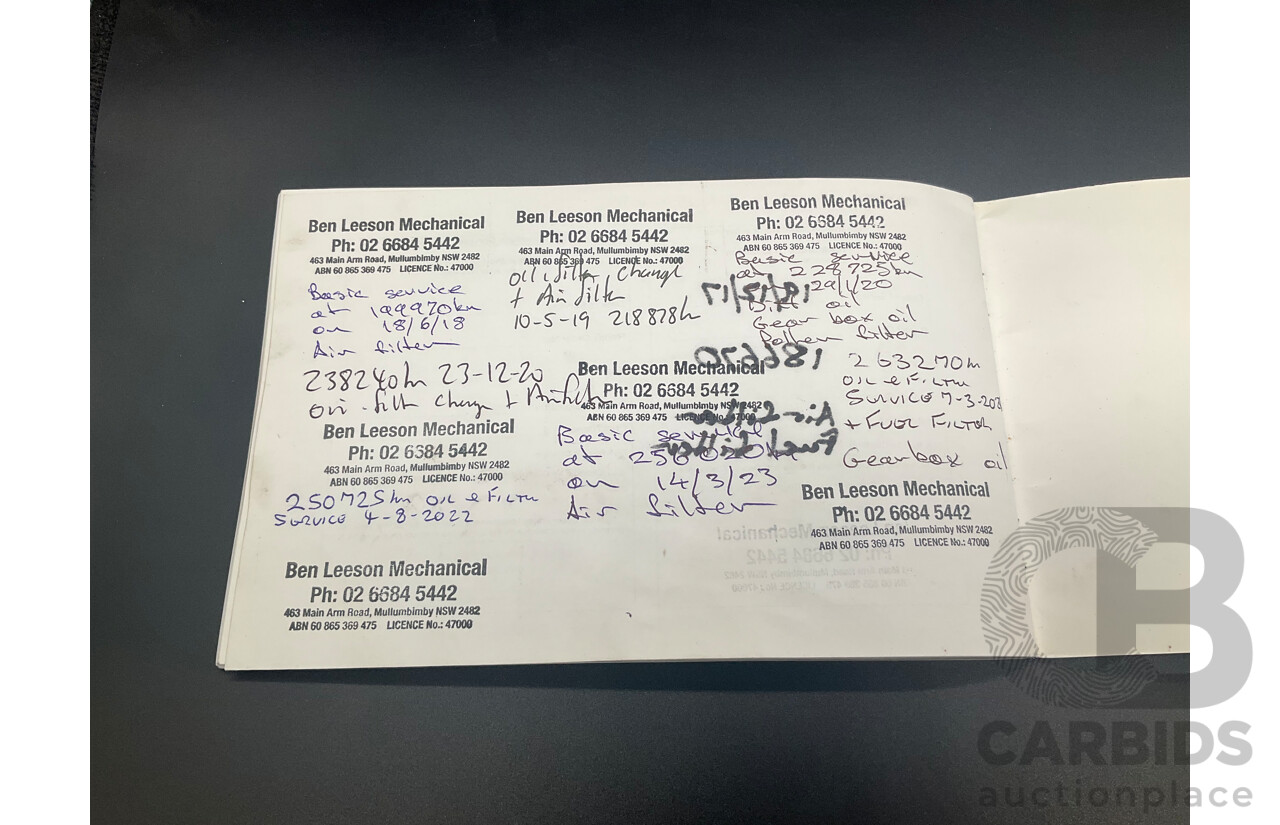 Ben Leeson Mechanical
Ph: 02 6684 5442
463 Main Arm Road, Mullumbimby NSW 2482
ABN 60 865 369 475 LICENCE No.: 47000
Basic service
at 199970km
on 18/6/18
Air filter
Ben Leeson Mechanical
Ph: 02 6684 5442
463 Main Arm Road, Mullumbimby NSW 2482
ABN 60 865 369 475 LICENCE No.: 47000
oil & filter change
+ Air filter
10-5-19 218878k
Ben Leeson Mechanical
Ph: 02 6684 5442
463 Main Arm Road, Mullumbimby NSW 2482
ABN 60 865 369 475 LICENCE No.: 47000
Basic service
at 228725km
29/1/20
Diff oil
Gear box oil
Pollen filter
238240km 23-12-20
Oil filter change + Air filter
Ben Leeson Mechanical
Ph: 02 6684 5442
463 Main Arm Road, Mullumbimby NSW 2482
ABN 60 865 369 475 LICENCE No.: 47000
250725km OIL & FILTER
SERVICE 4-8-2022
Ben Leeson Mechanical
Ph: 02 6684 5442
463 Main Arm Road, Mullumbimby NSW 2482
ABN 60 865 369 475 LICENCE No.: 47000
Basic service
at
on 14/3/23
Air filter
186670
Air filter
Fuel filter
263270km
OIL & FILTER
SERVICE
+ FUEL FILTER
Gearbox oil
Ben Leeson Mechanical
Ph: 02 6684 5442
463 Main Arm Road, Mullumbimby NSW 2482
ABN 60 865 369 475 LICENCE No.: 47000
Ben Leeson Mechanical
Ph: 02 6684 5442
463 Main Arm Road, Mullumbimby NSW 2482
ABN 60 865 369 475 LICENCE No.: 47000
CB
CARBIDS
auctionplace